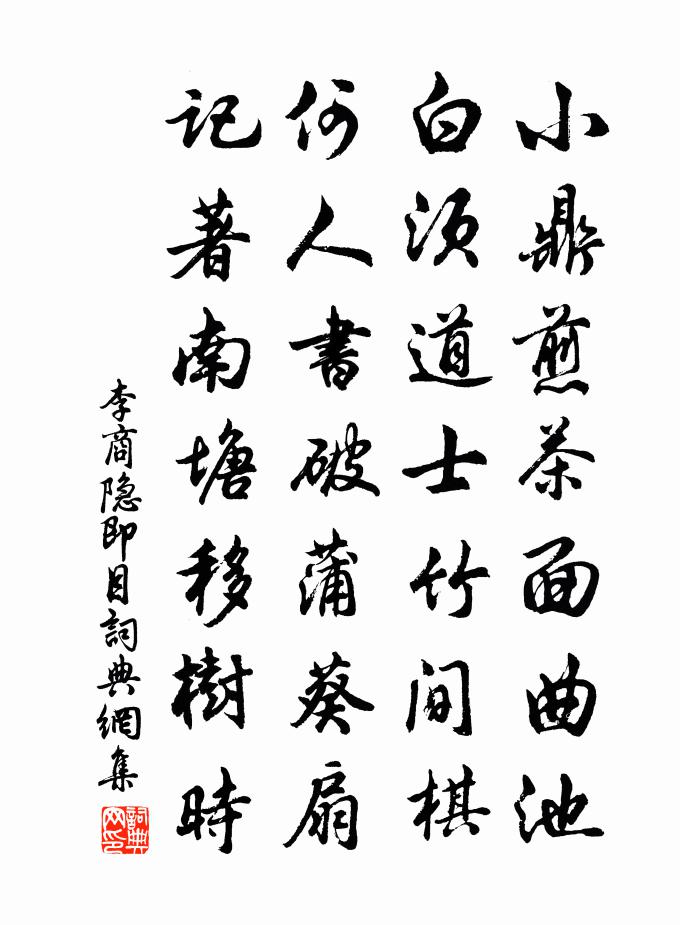 小鼎煎茶面曲池
白须道士竹间棋
何人書破蒲葵扇
記著南塘移樹時
李商隐即目詞典網集
詞典网印